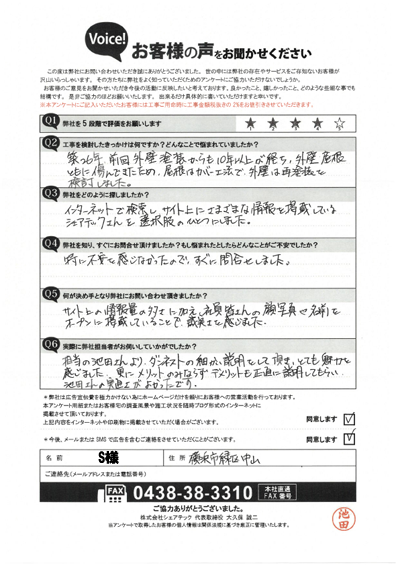 Voice!
お客様の声をお聞かせください
この度は弊社にお問い合わせいただき誠にありがとうございます。世の中には弊社の存在やサービスをご存知ないお客様が
沢山いらっしゃいます。その方たちに弊社をよく知っていただくためのアンケートにご協力いただけないでしょうか。
お客様のご意見をお聞かせいただき今後の活動に反映したいと考えております。良かったこと、嬉しかったこと、どのような些細な事でも
結構です。是非ご協力のほどお願いいたします。出来るだけ具体的に書いていただけますと幸いです。
※本アンケートにご記入いただいたお客様には工事ご用命時に工事金額税抜きの2%をお値引きさせていただきます。
Q1 弊社を5段階で評価をお願いします ★ ★ ★ ★ ☆
Q2 工事を検討したきっかけは何ですか?どんなことで悩まれていましたか?
前回外壁塗装からも10年以上が経ち、外壁屋根
ともに傷んできたため、屋根はカバー工法で、外壁は再塗装を
検討しました。
Q3 弊社をどのように探しましたか?
インターネットで検索し、サイト上にさまざまな情報を掲載している
シェアテックさんを選択肢のひとつにしました。
Q4 弊社を知り、すぐにお問合せ頂けましたか?もし悩まれたとしたらどんなことがご不安でしたか?
特に不安を感じなかったので、すぐに問合せしました。
Q5 何が決め手となり弊社にお問い合わせ頂きましたか?
サイト上の情報量の多さに加え、社員皆さんの顔写真や名前を
オープンに掲載していることで、誠実さを感じました。
Q6 実際に弊社担当者がお伺いしていかがでしたか?
担当の池田さんより、ダイレクトの細かい説明をして頂き、とても
感じました。更にメリットのみならずデメリットも正直に説明してもらい、
池田さんの実直さがよかったです。
※弊社は広告宣伝費を極力かけない為にホームページだけを頼りにお客様への営業活動を行っております。
本アンケート用紙またはお客様宅の調査風景や施工状況を随時ブログ形式のインターネットに
掲載させて頂いております。
上記内容をインターネットや印刷物に掲載させていただく場合がございます。 同意します ☑
※今後、メールまたはSMSで広告を含むご連絡をさせていただくことがございます。 同意します ☑
名前 S様 住所 横浜市緑区中山
ご連絡先(メールアドレスまたは電話番号)
FAX 0438-38-3310 本社直通 FAX番号
ご協力ありがとうございました。
株式会社シェアテック 代表取締役 大久保 誠二
※アンケートで取得したお客様の個人情報は関係法規に基づき厳正に管理いたします。
池田